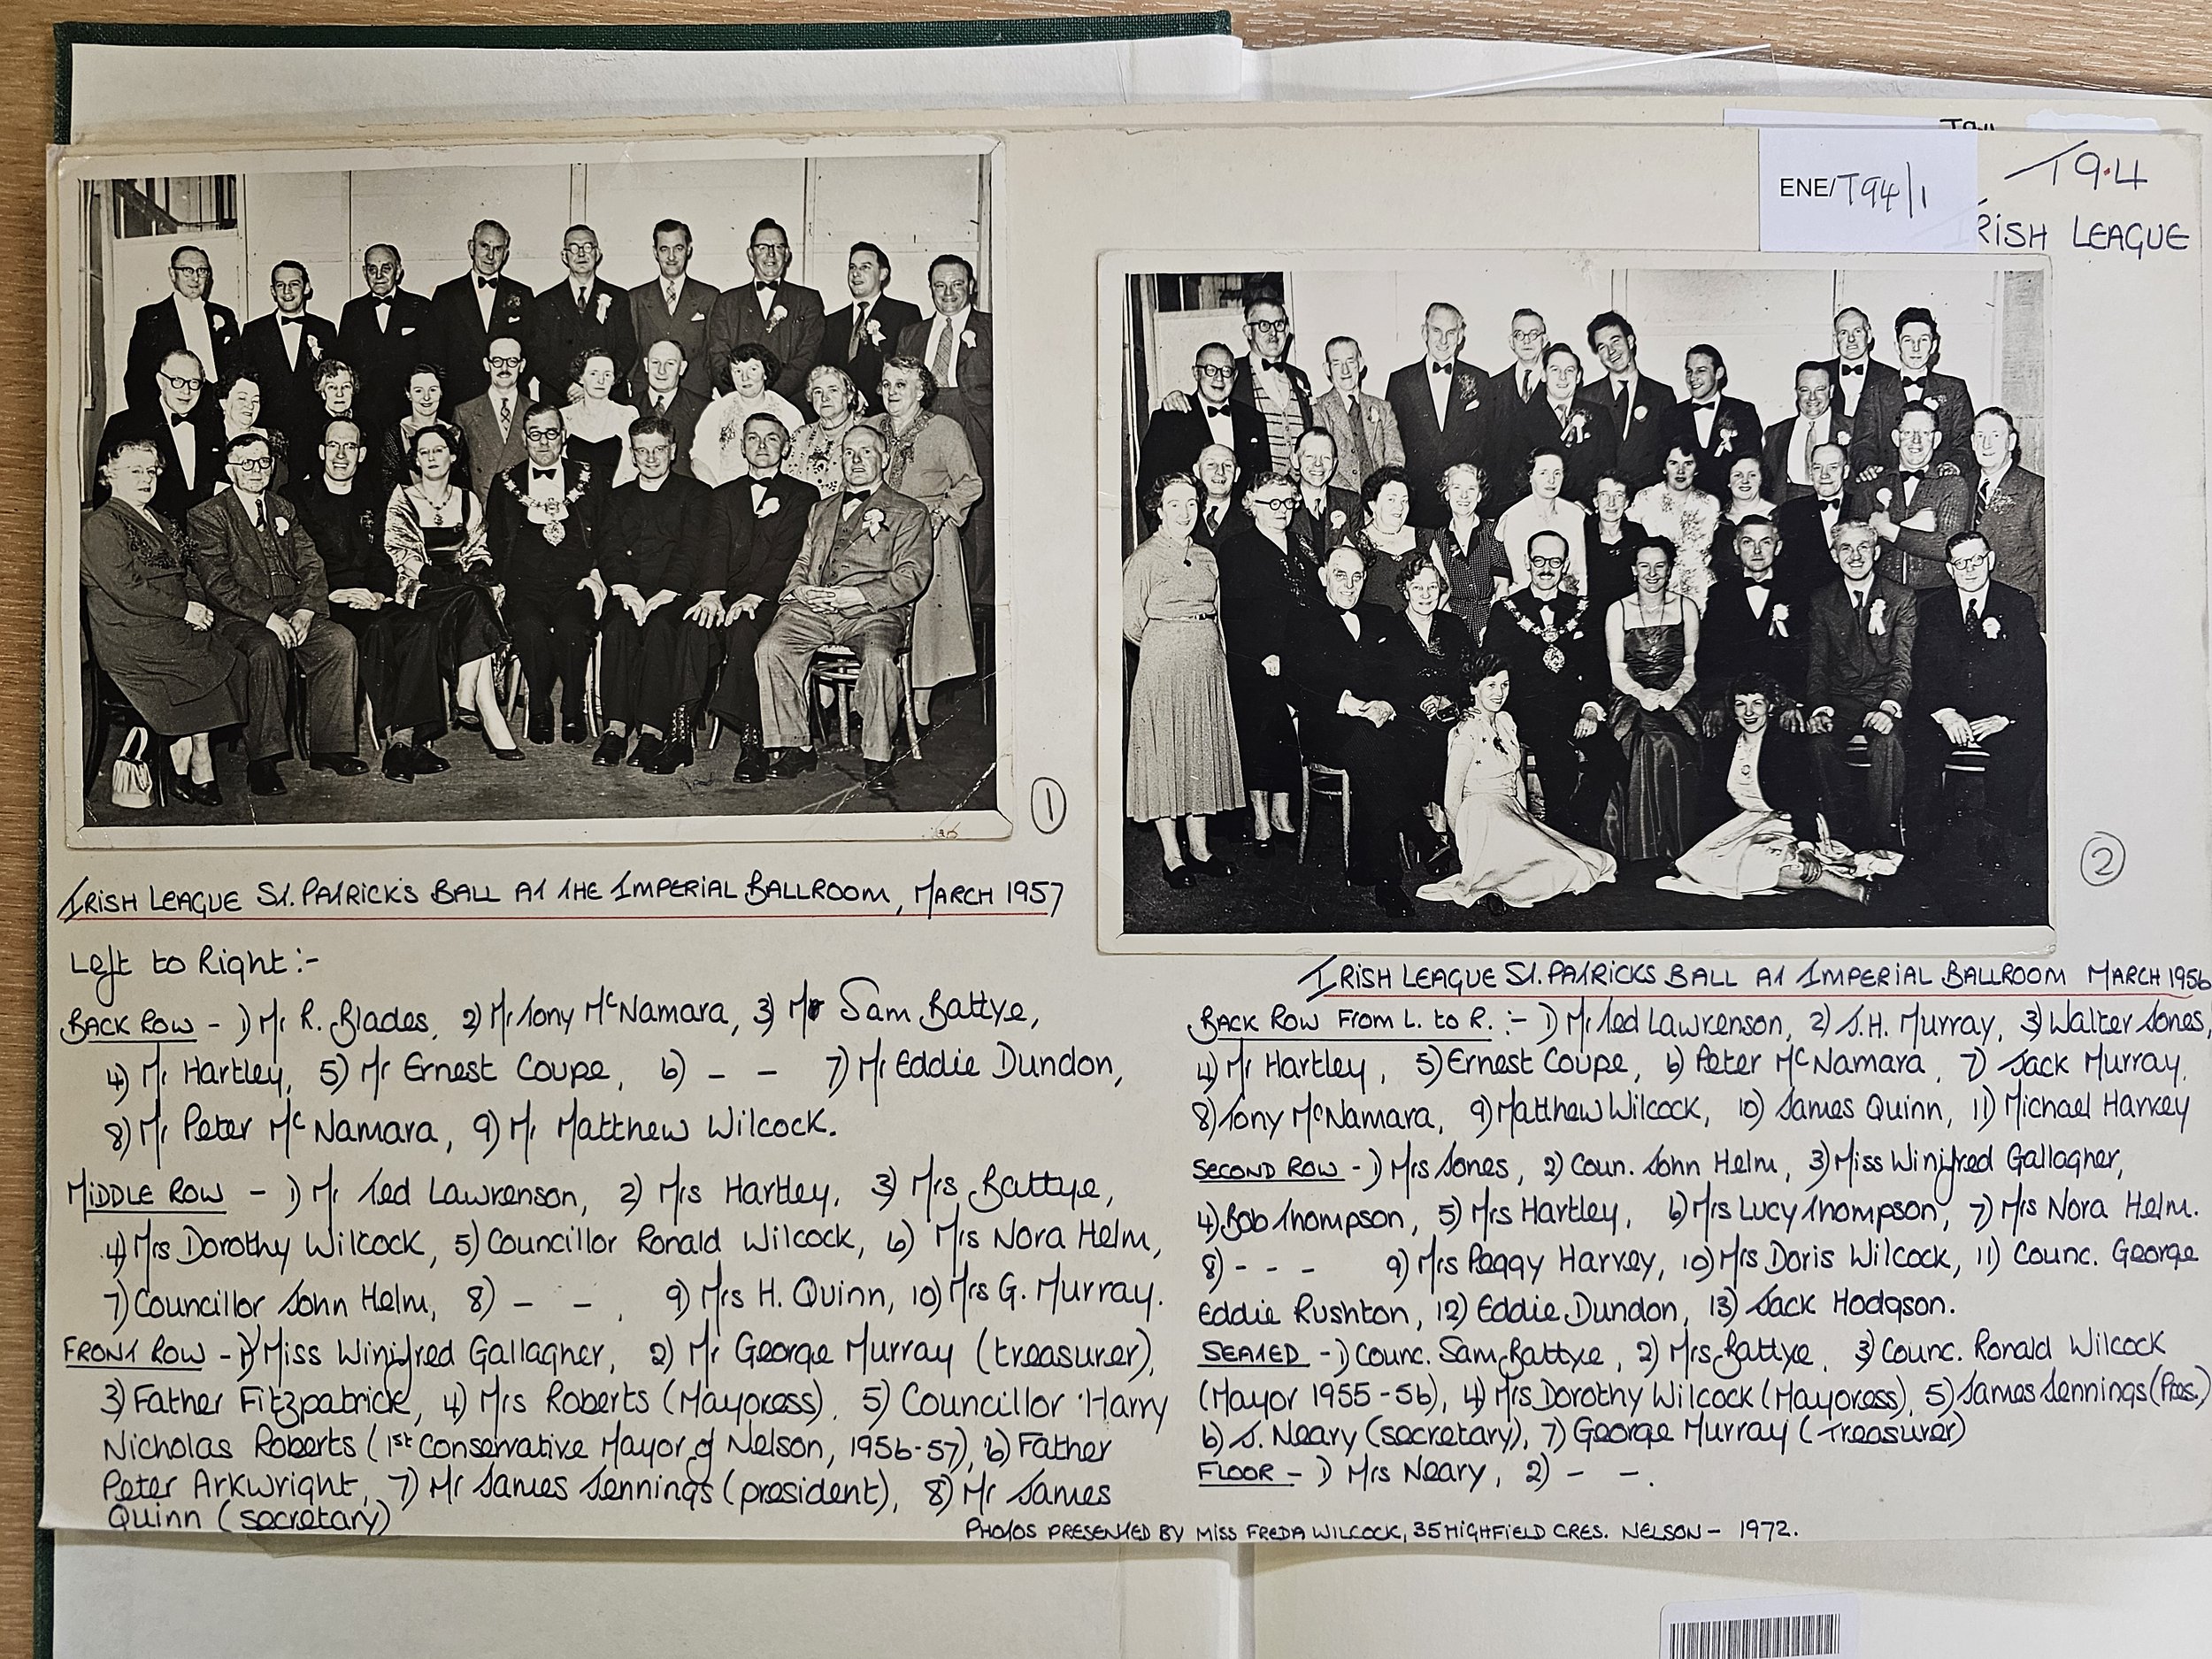 T94
ENE/T94/1
T9.4
IRISH LEAGUE
1
2
IRISH LEAGUE ST. PATRICK'S BALL AT THE IMPERIAL BALLROOM, MARCH 1957
Left to Right:-
BACK ROW - 1) Mr R. Blades, 2) Mr Tony McNamara, 3) Mr Sam Battye,
4) Mr Hartley, 5) Mr Ernest Coupe, 6) - - 7) Mr Eddie Dundon,
8) Mr Peter McNamara, 9) Mr Matthew Wilcock.
MIDDLE ROW - 1) Mr Ted Lawrenson, 2) Mrs Hartley, 3) Mrs Battye,
4) Mrs Dorothy Wilcock, 5) Councillor Ronald Wilcock, 6) Mrs Nora Helm,
7) Councillor John Helm, 8) - - , 9) Mrs H. Quinn, 10) Mrs G. Murray.
FRONT ROW - 1) Miss Winifred Gallagher, 2) Mr George Murray (treasurer),
3) Father Fitzpatrick, 4) Mrs Roberts (Mayoress), 5) Councillor Harry
Nicholas Roberts (1st Conservative Mayor of Nelson, 1956-57), 6) Father
Peter Arkwright, 7) Mr James Jennings (president), 8) Mr James
Quinn (secretary)
IRISH LEAGUE ST. PATRICKS BALL AT IMPERIAL BALLROOM MARCH 1956
BACK ROW FROM L. TO R. :- 1) Mr Ted Lawrenson, 2) J.H. Murray, 3) Walter Jones,
4) Mr Hartley, 5) Ernest Coupe, 6) Peter McNamara, 7) Jack Murray,
8) Tony McNamara, 9) Matthew Wilcock, 10) James Quinn, 11) Michael Harvey
SECOND ROW - 1) Mrs Jones, 2) Coun. John Helm, 3) Miss Winifred Gallagher,
4) Bob Thompson, 5) Mrs Hartley, 6) Mrs Lucy Thompson, 7) Mrs Nora Helm.
8) - - - 9) Mrs Peggy Harvey, 10) Mrs Doris Wilcock, 11) Counc. George
Eddie Rushton, 12) Eddie Dundon, 13) Jack Hodgson.
SEATED - 1) Counc. Sam Battye, 2) Mrs Battye, 3) Counc. Ronald Wilcock
(Mayor 1955-56), 4) Mrs Dorothy Wilcock (Mayoress), 5) James Jennings (Pres.)
6) J. Neary (secretary), 7) George Murray (Treasurer)
FLOOR - 1) Mrs Neary, 2) - - .
PHOTOS PRESENTED BY MISS FREDA WILCOCK, 35 HIGHFIELD CRES. NELSON - 1972.